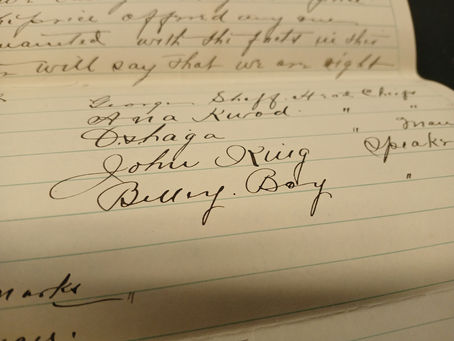 afford any one
with the facts in this
will say that we are right
George Sheff Head Chief
Ana Kwod " "
Oshaga "
John King Speaker
Billy. Boy "
marks "